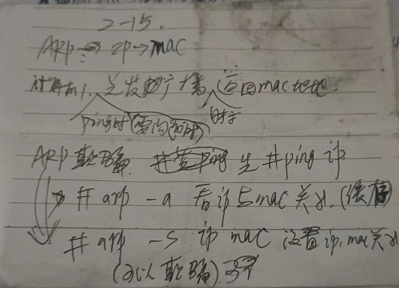 2-15.
ARP → ip→mac
计算机1. 先发的广播, 返回mac地址.
ping时 时
ARP欺骗. 先 #ping ip
# arp -a 看ip与mac关系.(缓存)
# arp -s ip mac 设置ip,mac关系
(可以欺骗)